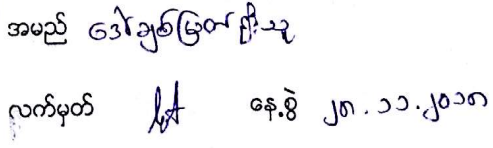 အမည် ဒေါ်ချစ်မြတ်နိုးသူ
လက်မှတ် နေ့စွဲ ၂၈.၁၁.၂၀၁၈